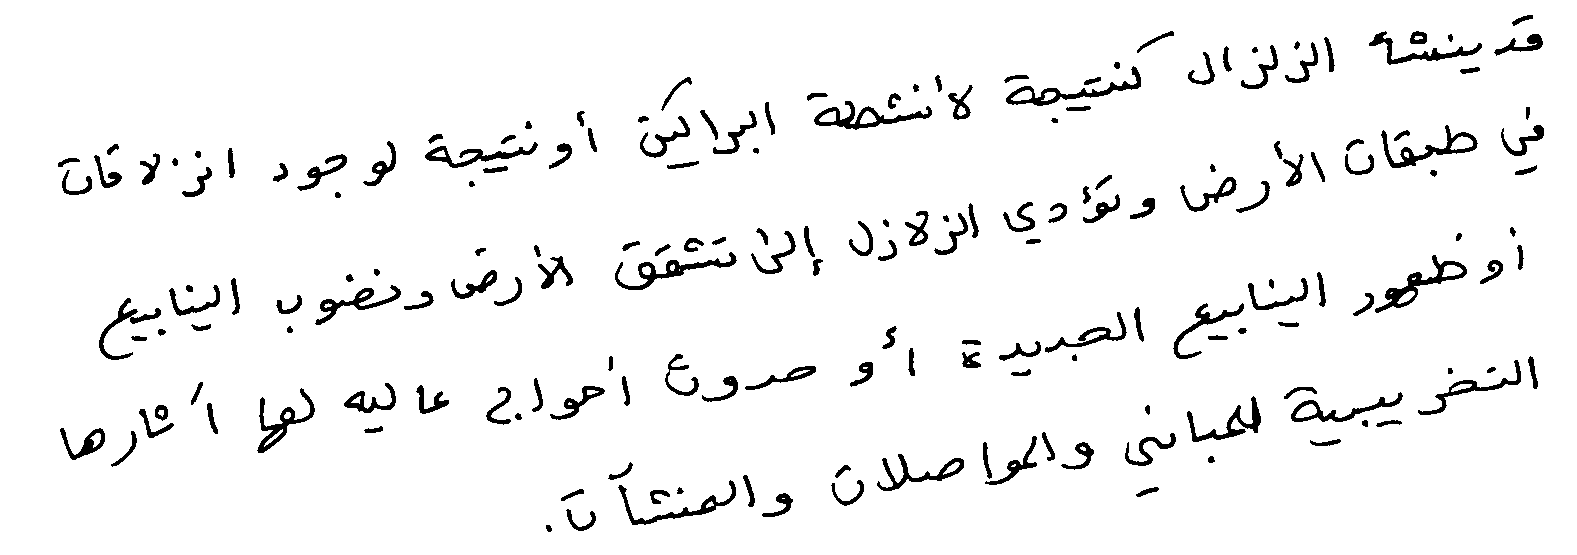 قد ينشأ الزلزال كنتيجة لأنشطة البراكين أو نتيجة لوجود انزلاقات
في طبقات الأرض وتؤدي الزلازل إلى تشقق الأرض ونضوب الينابيع
أو ظهور الينابيع الجديدة أو حدوث أمواج عاليه لها آثارها
التخريبية للمباني والمواصلات والمنشآت.